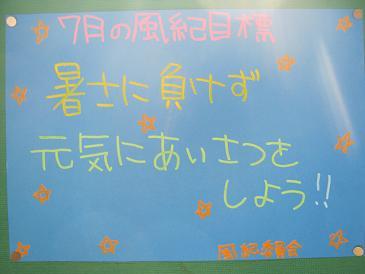 7月の風紀目標
暑さに負けず
元気にあいさつを
しよう!!
風紀委員会